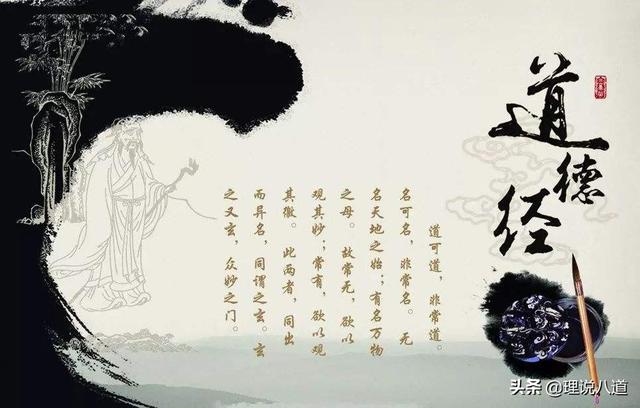 道德经
道可道，非常道。
名可名，非常名。 无
名天地之始；有名万物
之母。 故常无，欲以
观其妙；常有，欲以观
其徼。 此两者，同出
而异名，同谓之玄。玄
之又玄，众妙之门。
头条 @理说八道